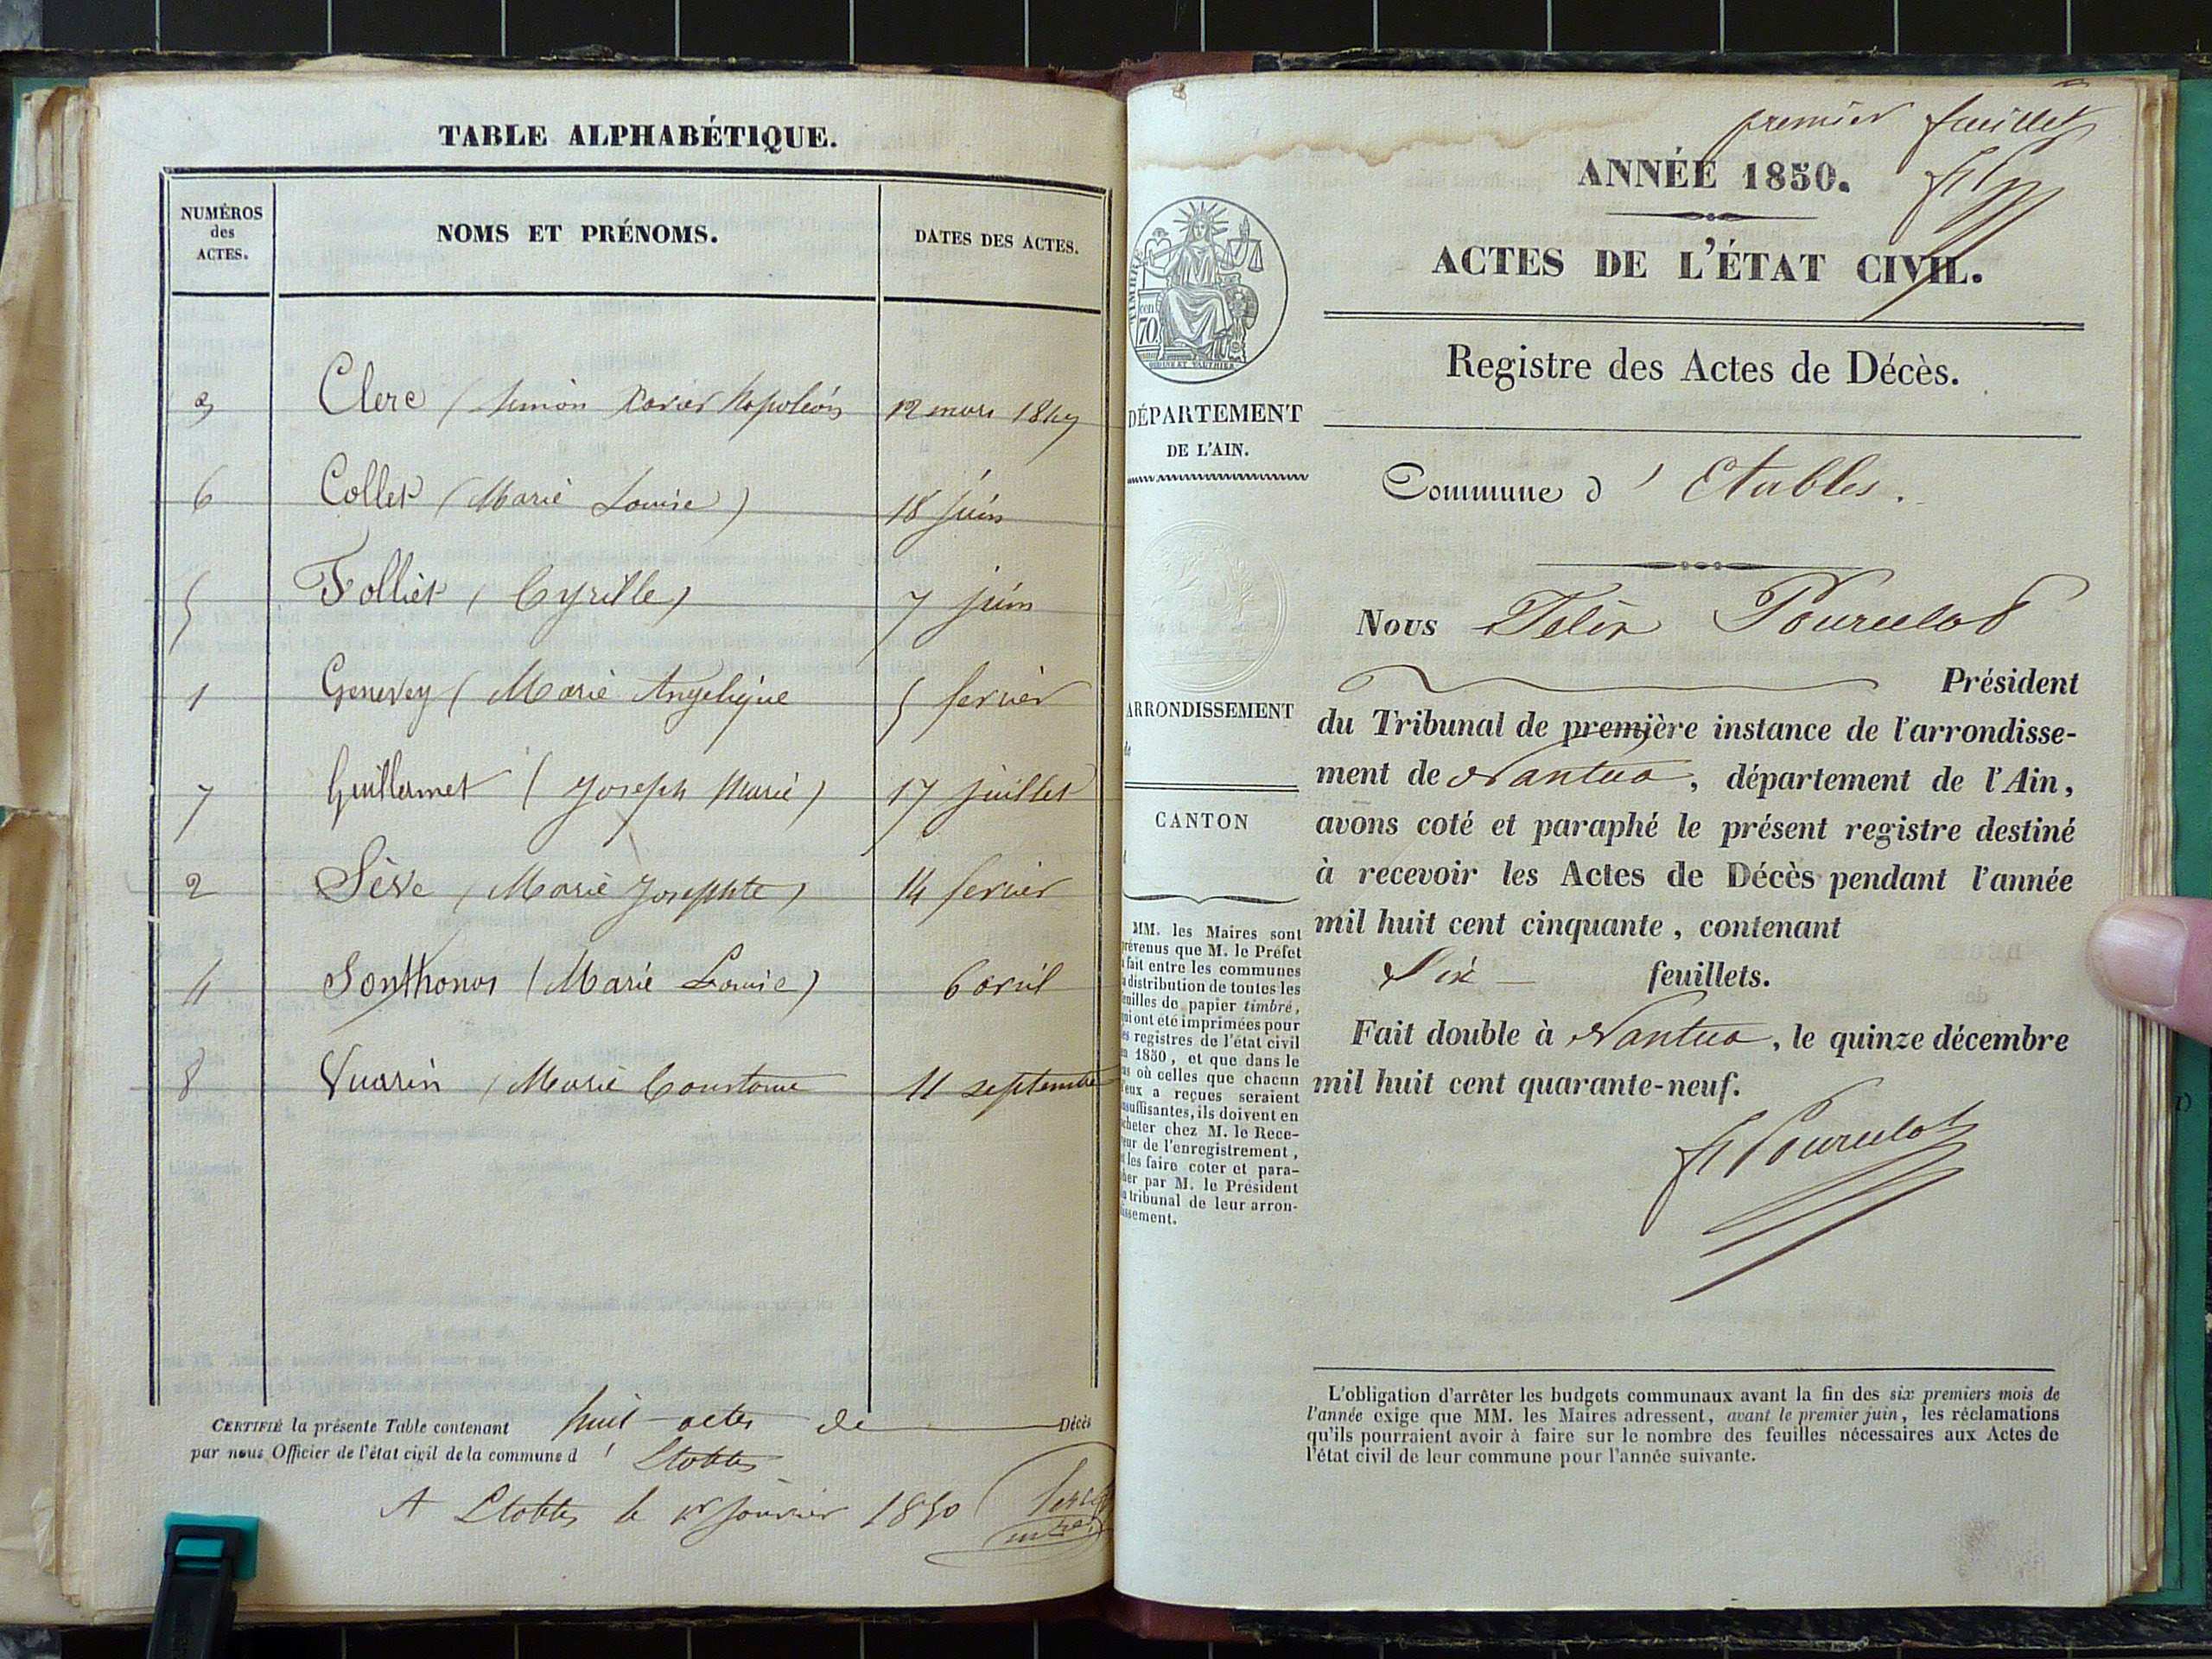 TABLE ALPHABÉTIQUE.
NUMÉROS
des
ACTES.
NOMS ET PRÉNOMS.
DATES DES ACTES.
3 Clerc ( Simon Xavier Napoléon 12 mars 1849
6 Collet ( Marie Louise ) 18 juin
5 Folliet ( Cyrille ) 7 juin
1 Genevey ( Marie Angelique 5 fevrier
7 Guillermet ( Joseph Marie ) 17 juillet
2 Sève ( Marie Josephte ) 14 fevrier
4 Sonthonas ( Marie Louise ) 6 avril
8 Vuarin ( Marie Constance 11 septembre
CERTIFIÉ la présente Table contenant huit actes de Décès
par nous Officier de l'état civil de la commune d ' Etables
A Etables le 1er janvier 1850
premier feuillet
ANNÉE 1850.
ACTES DE L'ÉTAT CIVIL.
Registre des Actes de Décès.
70
DÉPARTEMENT
DE L'AIN.
Commune d ' Etables.
Nous Félix Pourcelot
Président
du Tribunal de première instance de l'arrondisse-
ment de Nantua, département de l'Ain,
avons coté et paraphé le présent registre destiné
à recevoir les Actes de Décès pendant l'année
mil huit cent cinquante, contenant
Six feuillets.
Fait double à Nantua, le quinze décembre
mil huit cent quarante-neuf.
F Pourcelot
ARRONDISSEMENT
de
CANTON
MM. les Maires sont
prévenus que M. le Préfet
a fait entre les communes
la distribution de toutes les
feuilles de papier timbré,
qui ont été imprimées pour
les registres de l'état civil
en 1850, et que dans le
cas où celles que chacun
d'eux a reçues seraient
insuffisantes, ils doivent en
acheter chez M. le Rece-
veur de l'enregistrement,
et les faire coter et para-
pher par M. le Président
du tribunal de leur arron-
dissement.
L'obligation d'arrêter les budgets communaux avant la fin des six premiers mois de
l'année exige que MM. les Maires adressent, avant le premier juin, les réclamations
qu'ils pourraient avoir à faire sur le nombre des feuilles nécessaires aux Actes de
l'état civil de leur commune pour l'année suivante.